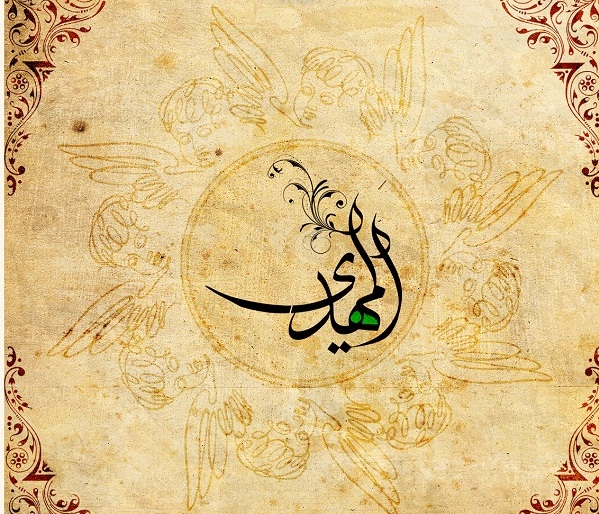 المهدي